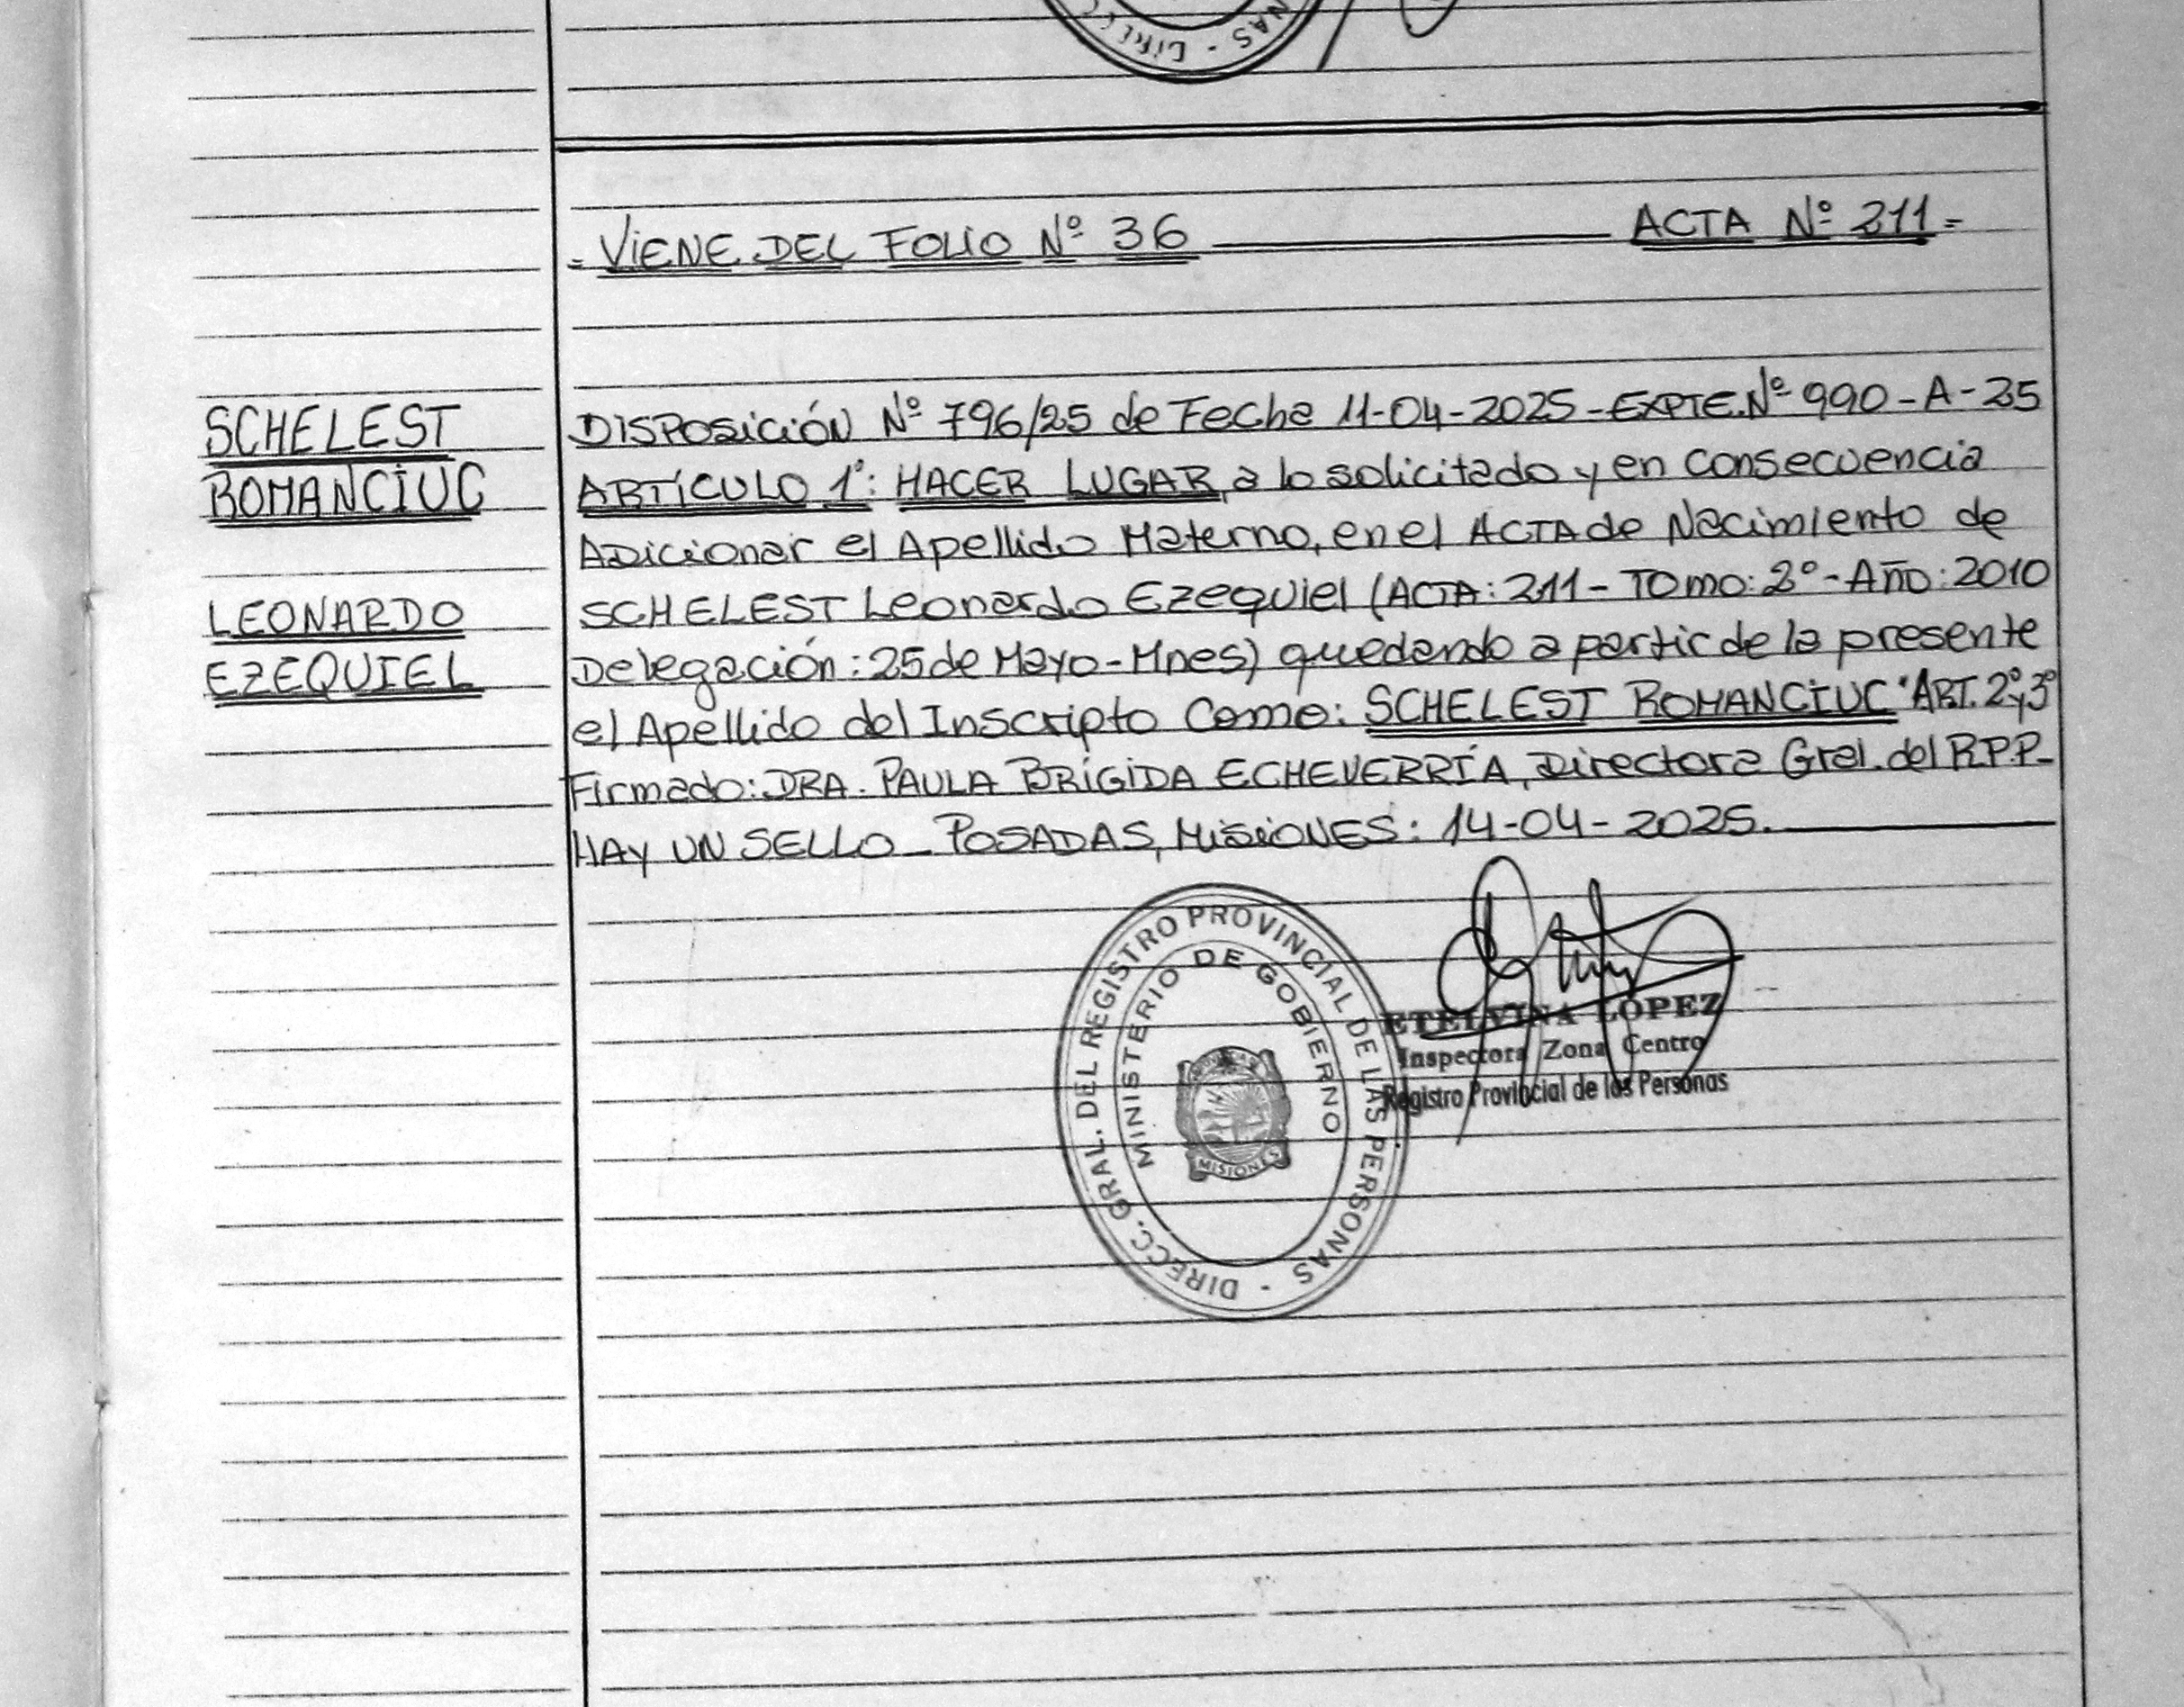 = VIENE DEL FOLIO Nº 36 ACTA Nº 211 =
SCHELEST
ROMANCIUC
LEONARDO
EZEQUIEL
DISPOSICIÓN Nº 796/25 de Fecha 11-04-2025-EXPTE.Nº 990-A-25
ARTÍCULO 1º: HACER LUGAR, a lo solicitado y en consecuencia
Adicionar el Apellido Materno, en el ACTA de Nacimiento de
SCHELEST Leonardo Ezequiel (ACTA: 211 - TOMO: 2º - AÑO: 2010
Delegación: 25 de Mayo-Mnes) quedando a partir de la presente
el Apellido del Inscripto Como: SCHELEST ROMANCIUC "ART. 2º y 3º
Firmado: DRA. PAULA BRÍGIDA ECHEVERRÍA, Directora Gral. del R.P.P-
HAY UN SELLO - POSADAS, MISIONES: 14-04-2025.
DIRECC. GRAL. DEL REGISTRO PROVINCIAL DE LAS PERSONAS -
MINISTERIO DE GOBIERNO
MISIONES
ETELVINA LÓPEZ
Inspectora Zona Centro
Registro Provincial de las Personas